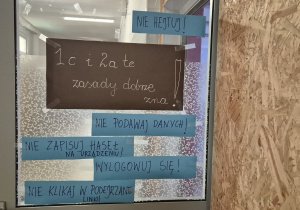 NIE HEJTUJ!
1c i 2a te
zasady dobrze
zna!
NIE PODAWAJ DANYCH!
NIE ZAPISUJ HASEŁ,
NA URZĄDZENIU!
WYLOGOWUJ SIĘ!
NIE KLIKAJ W PODEJRZANE
LINKI